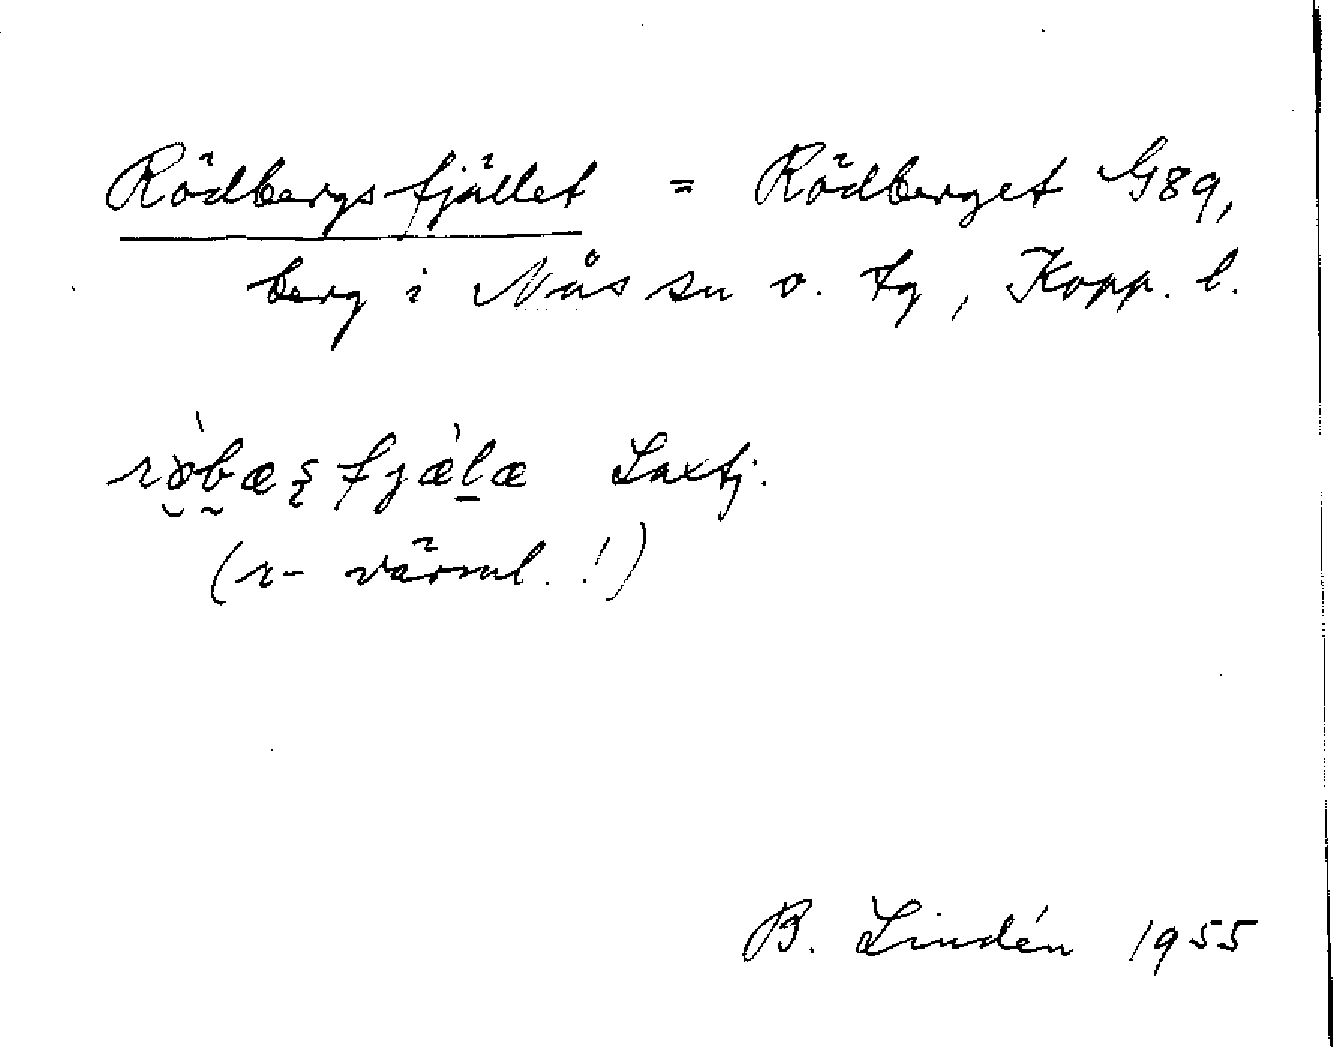 Rödbergsfjället = Rödberget G89,
berg i Nås sn o. tg, Kopp. l.
rö̀bæʂfjæ̀læ Laxtj.
(r- värml. !)
B. Lindén 1955